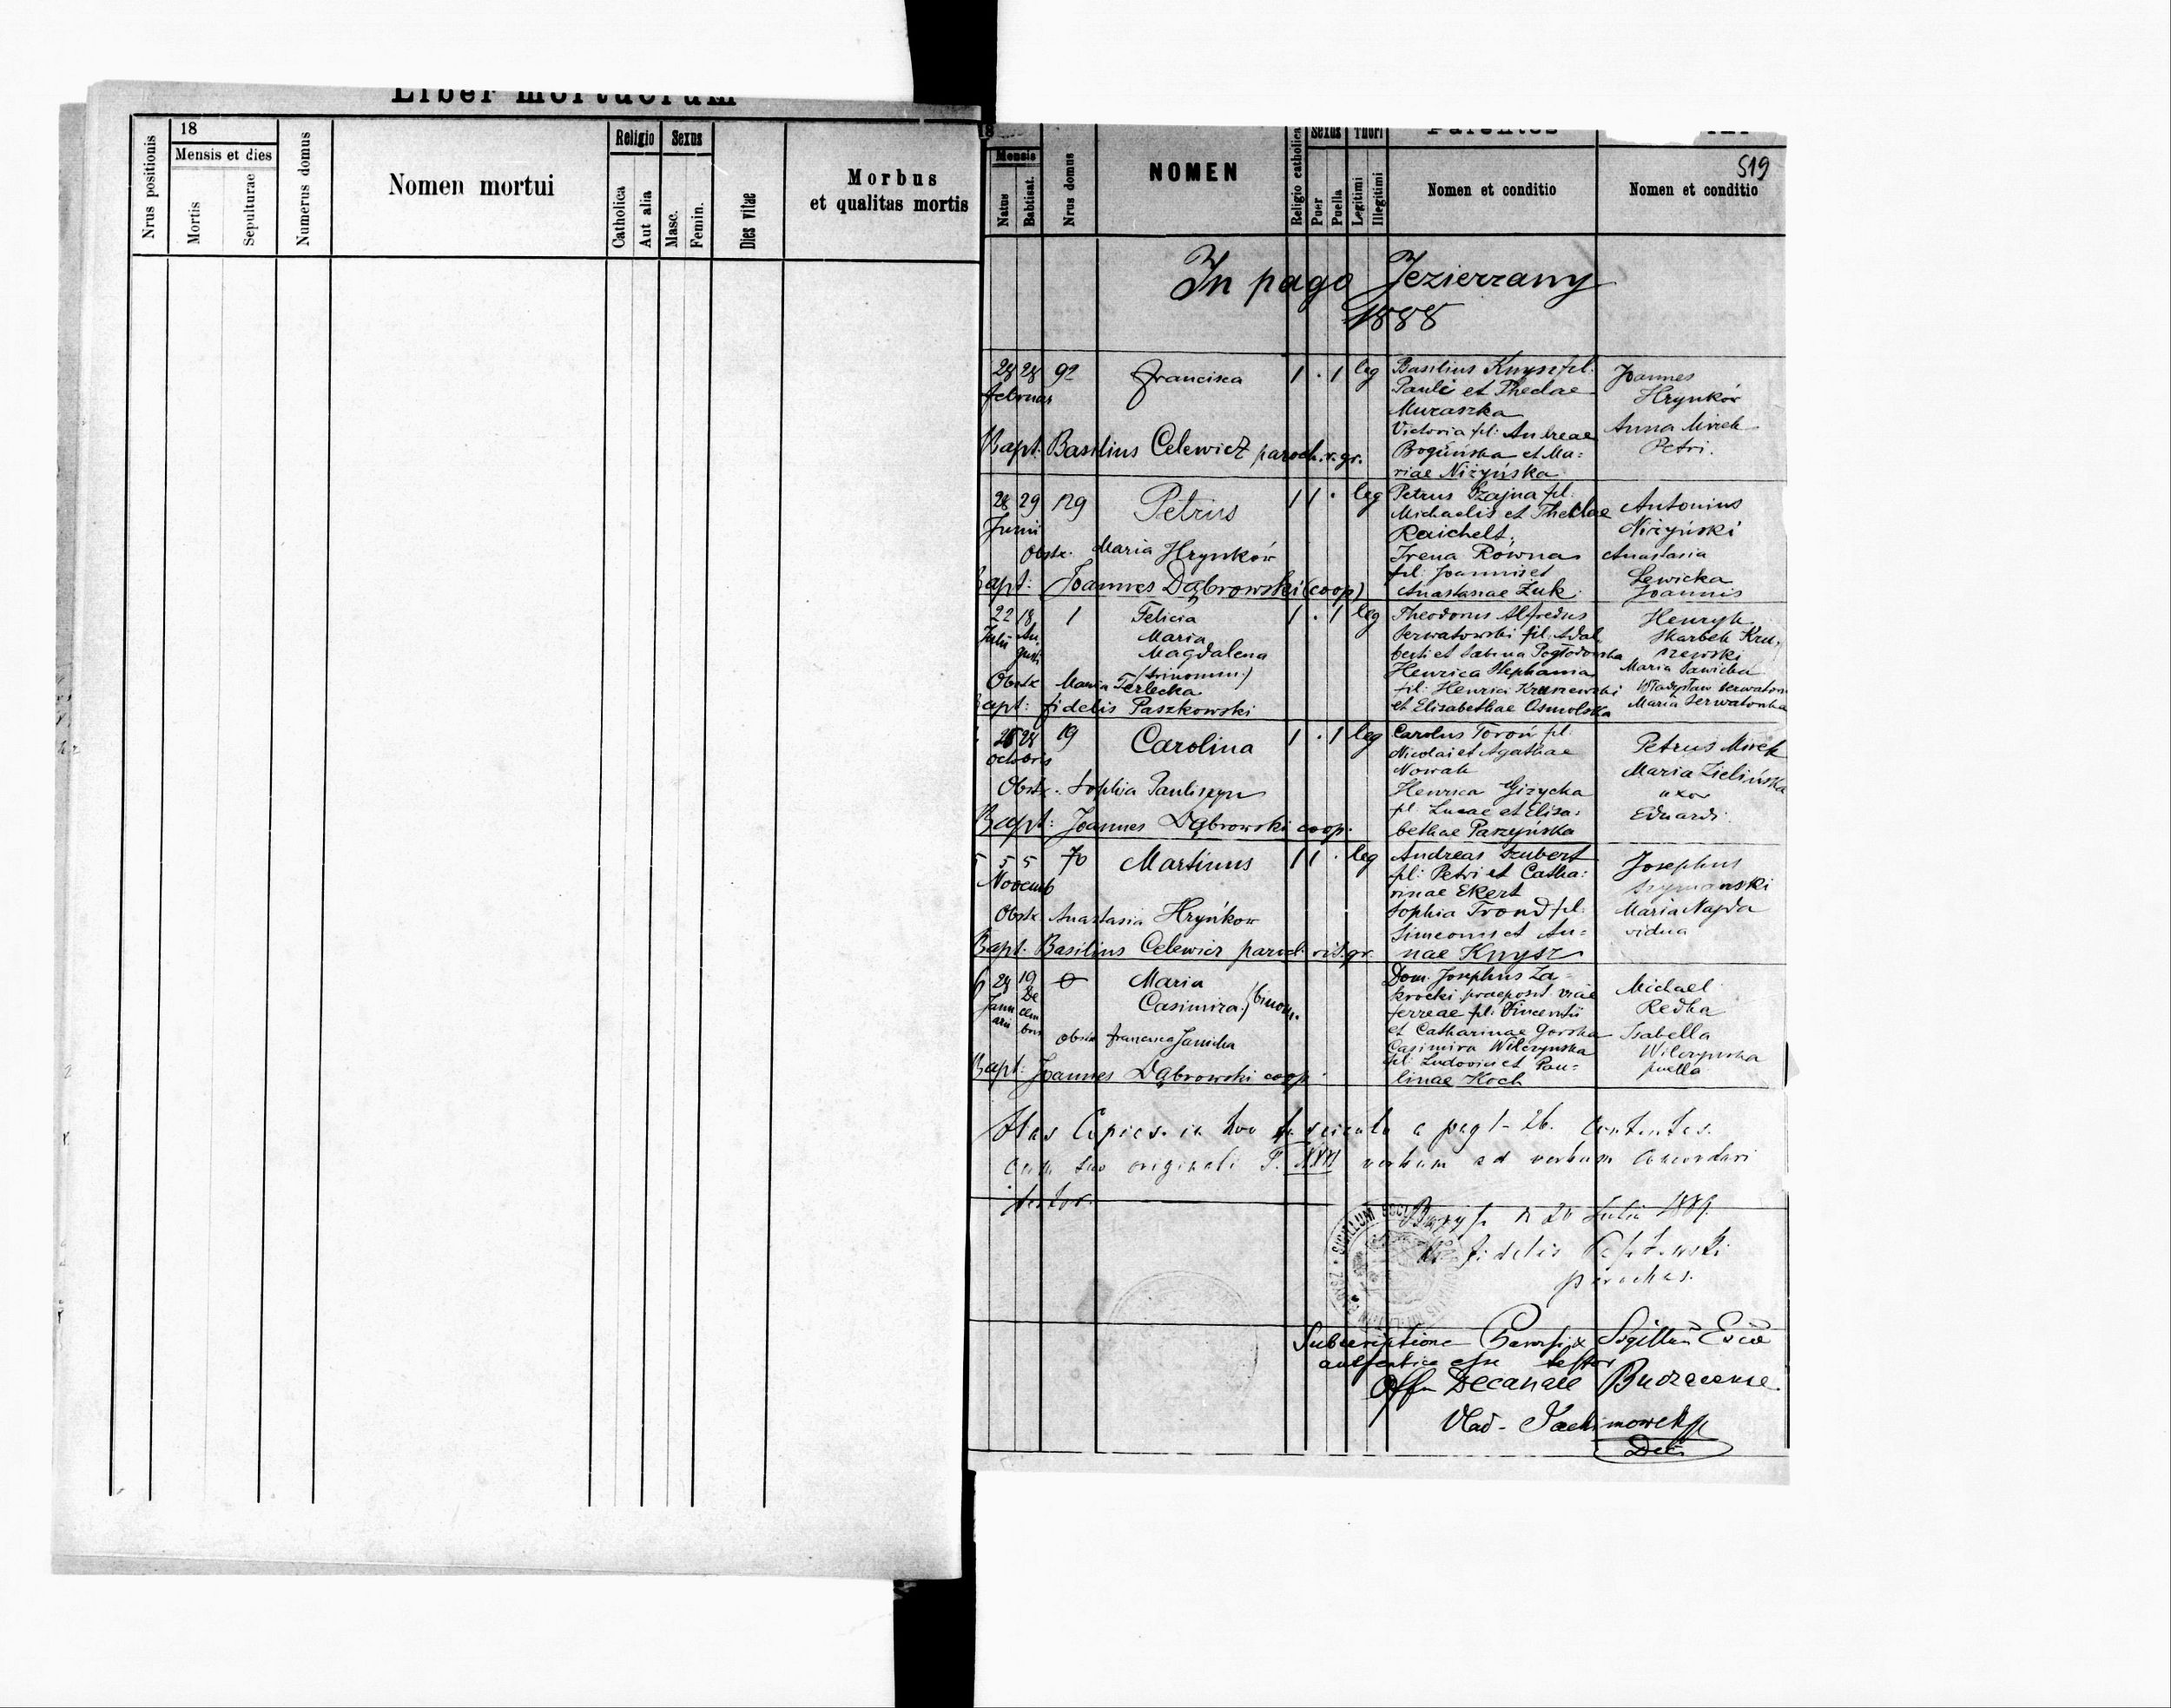 Liber mortuorum
Nrus positionis
18
Mensis et dies
Mortis
Sepulturae
Numerus domus
Nomen mortui
Religio
Catholica
Aut alia
Sexus
Masc.
Femin.
Dies vitae
Morbus
et qualitas mortis
18
Mensis
Natus
Babtisat.
Nrus domus
NOMEN
Religio catholica
Sexus
Puer
Puella
Thori
Legitimi
Illegitimi
Parentes
Nomen et conditio
519
Nomen et conditio
In pago Jezierzany
1888
28 28 92 Francisca 1 . 1 leg
Februar
Bapt. Basilius Celewicz paroch. r. gr.
Basilius Knysz fil.
Pauli et Theclae
Muraszka
Victoria fil: Andreae
Bogúńska et Ma:
riae Niżyńska
Joannes
Hrynków
Anna Mirek
Petri.
28 29 129 Petrus 1 1 . leg
Junii
Obstx. Maria Hrynków
Bapt: Joannes Dąbrowski (coop)
Petrus Szajna fil.
Michaelis et Theklae
Raichelt,
Irena Równa
fil: Joannis et
Anastasiae Żuk
Antonius
Niżyński
Anastasia
Lewicka
Joannis
22 18 1 Felicia 1 . 1 leg
Julii Au
gusti
Maria
Magdalena
(trinomin.)
Obstx Maria Terlecka
Bapt: Fidelis Paszkowski
Theodorus Alfredus
Serwatowski fil. Adal
berti et Sabina Pogłodowska
Henrica Stephania
fil: Henrici Kruszewski
et Elisabethae Osmolska
Henryk
Skarbek Kru,
szewski
Maria Sawicka
Władysław Serwatow
Maria Serwatowska
28 19 Carolina 1 . 1 leg
octobris
Obstx. Sophia Pauliszyn
Bapt: Joannes Dąbrowski coop.
Carolus Toroń fil.
Nicolai et Agathae
Nowak
Henrica Giżycka
fil: Lucae et Elisa:
bethae Paszyńska
Petrus Mirek
Maria Zielińska
uxor
Eduardi
5 5 5 70 Martinus 1 1 . leg
Novemb
Obstx Anastasia Hryńkow
Bapt. Basilius Celewicz paroch. rit. gr.
Andreas Szubert
fil: Petri et Catha:
rinae Ekert
Sophia Trond fil:
Simeonis et An=
nae Knysz
Josephus
Szymański
Maria Najda
vidua
6 28 19 0 Maria
Janu De
arii cem
bris
Casimira /binom.
obstx Francisca Janicka
Bapt: Joannes Dąbrowski coop.
Dom. Josephus Za=
krocki praeposit viae
ferreae fil: Vincentii
et Catharinae Gorska
Casimira Wilczynska
fil: Ludovici et Pau=
linae Koch
Michael
Redka
Isabella
Wilczynska
puella
Has Copies in hoc fasciculo a pag 1-26. Contentas.
cum suo originali T. XVI verbum ad verbum Concordari
testor.
20 Julii 1889.
Fidelis Paszkowski
parochus.
SIGILLUM
Subscriptione Parochi & Sigillum
authentica esse testor
Off. Decanale Buczacense
Vlad. Jachimowski
Dec